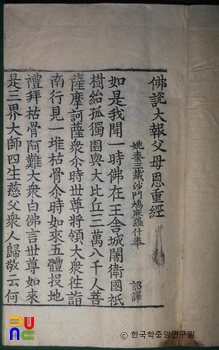 佛說大報父母恩重經
姚秦三藏沙門鳩摩羅什奉 詔譯
如是我聞一時佛在王舍城闍衛國祇
樹給孤獨園與大比丘三萬八千人菩
薩摩訶薩衆俱爾時世尊將領大衆往詣
南行見一堆枯骨爾時如來五體投地
禮拜枯骨阿難大衆白佛言世尊如來
是三界大師四生慈父衆人歸敬云何
한국학중앙연구원